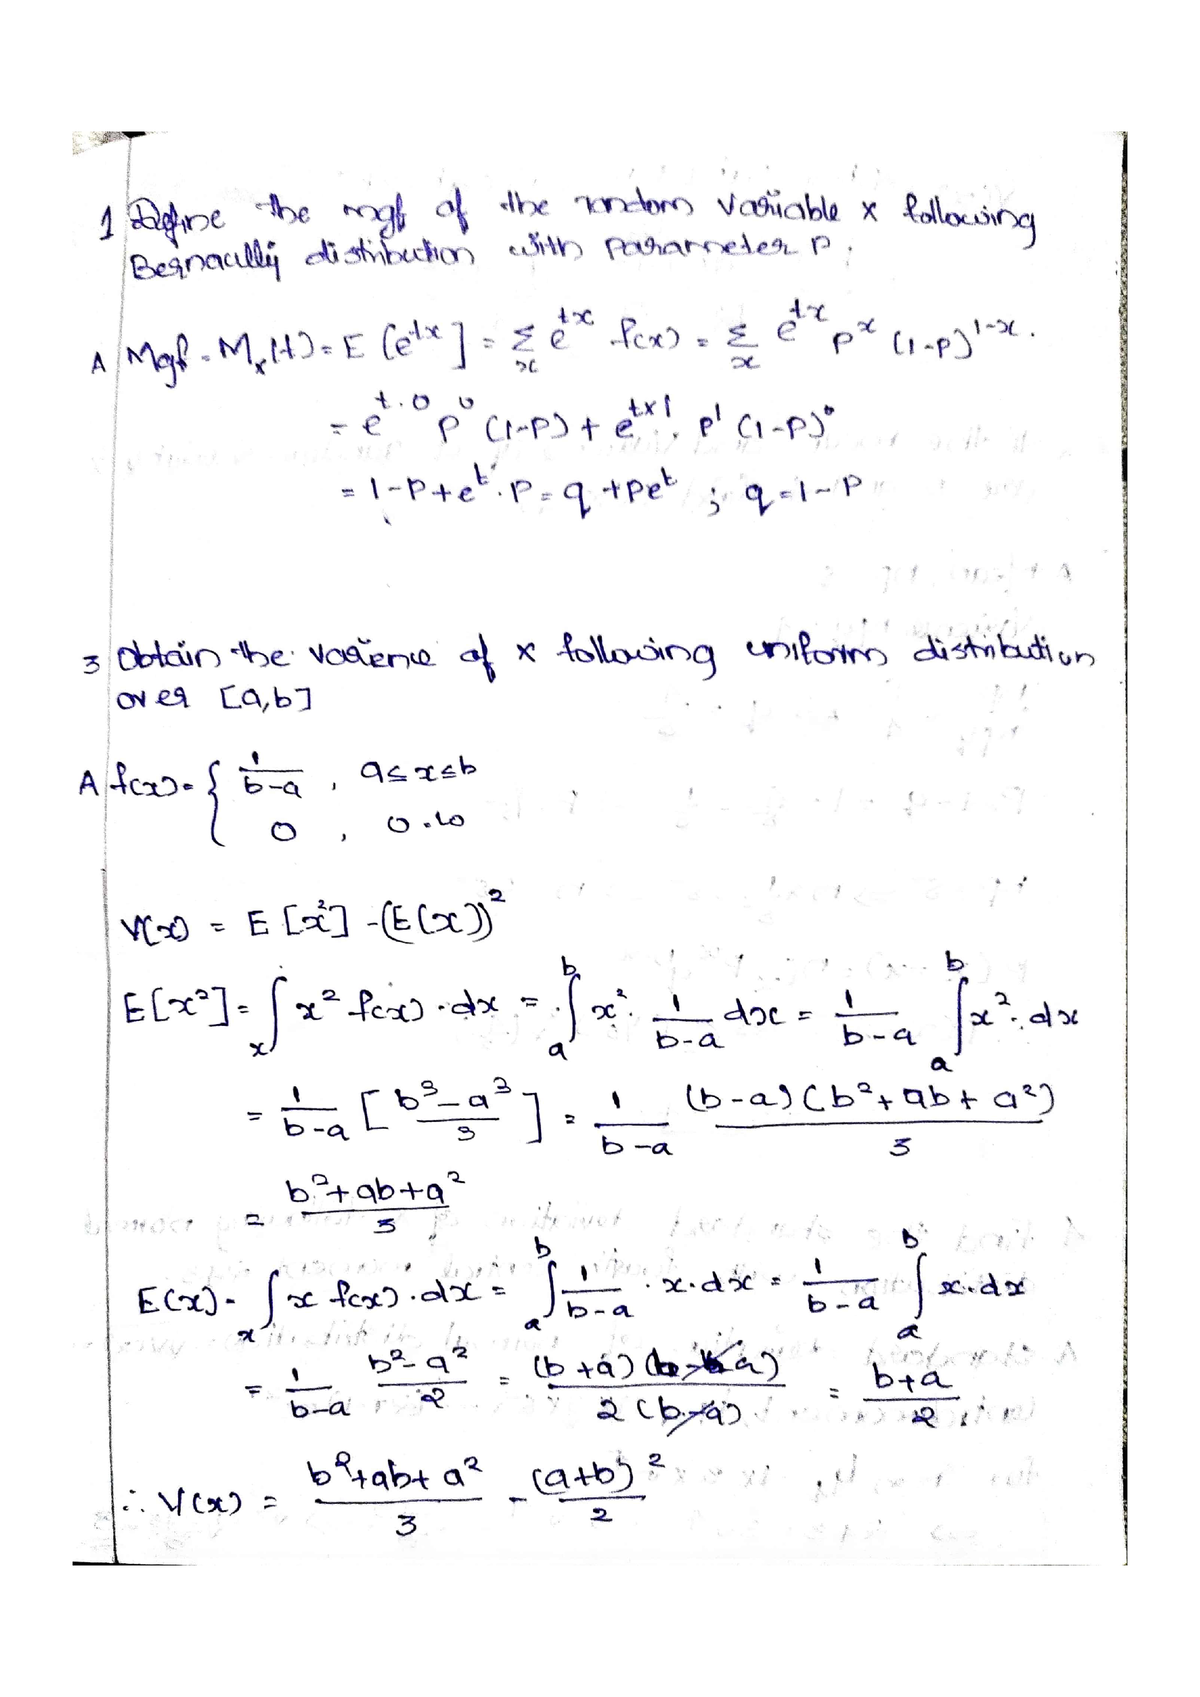 1 Define the mgf of the random variable x following
Bernoully distribution with parameter P.
A Mgf = M_x(t) = E[e^{tx}] = Σ_x e^{tx} f(x) = Σ_x e^{tx} p^x (1-p)^{1-x}.
= e^{t.0} p^0 (1-p) + e^{t×1}. p^1 (1-p)^0
= 1-p+e^t.p = q+pe^t ; q=1-p
3 Obtain the varience of x following uniform distribution
over [a,b]
A f(x) = { 1/(b-a) , a≤x≤b
0 , 0.w
V(x) = E[x^2] - (E(x))^2
E[x^2] = ∫_x x^2 f(x).dx = ∫_a^b x^2. 1/(b-a) dx = 1/(b-a) ∫_a^b x^2.dx
= 1/(b-a) [(b^3-a^3)/3] = 1/(b-a) (b-a)(b^2+ab+a^2)/3
= (b^2+ab+a^2)/3
E(x) = ∫_x x f(x).dx = ∫_a^b 1/(b-a) . x.dx = 1/(b-a) ∫_a^b x.dx
= 1/(b-a) (b^2-a^2)/2 = (b+a)(b-a)/2(b-a) = (b+a)/2
∴ V(x) = (b^2+ab+a^2)/3 - (a+b)^2/2